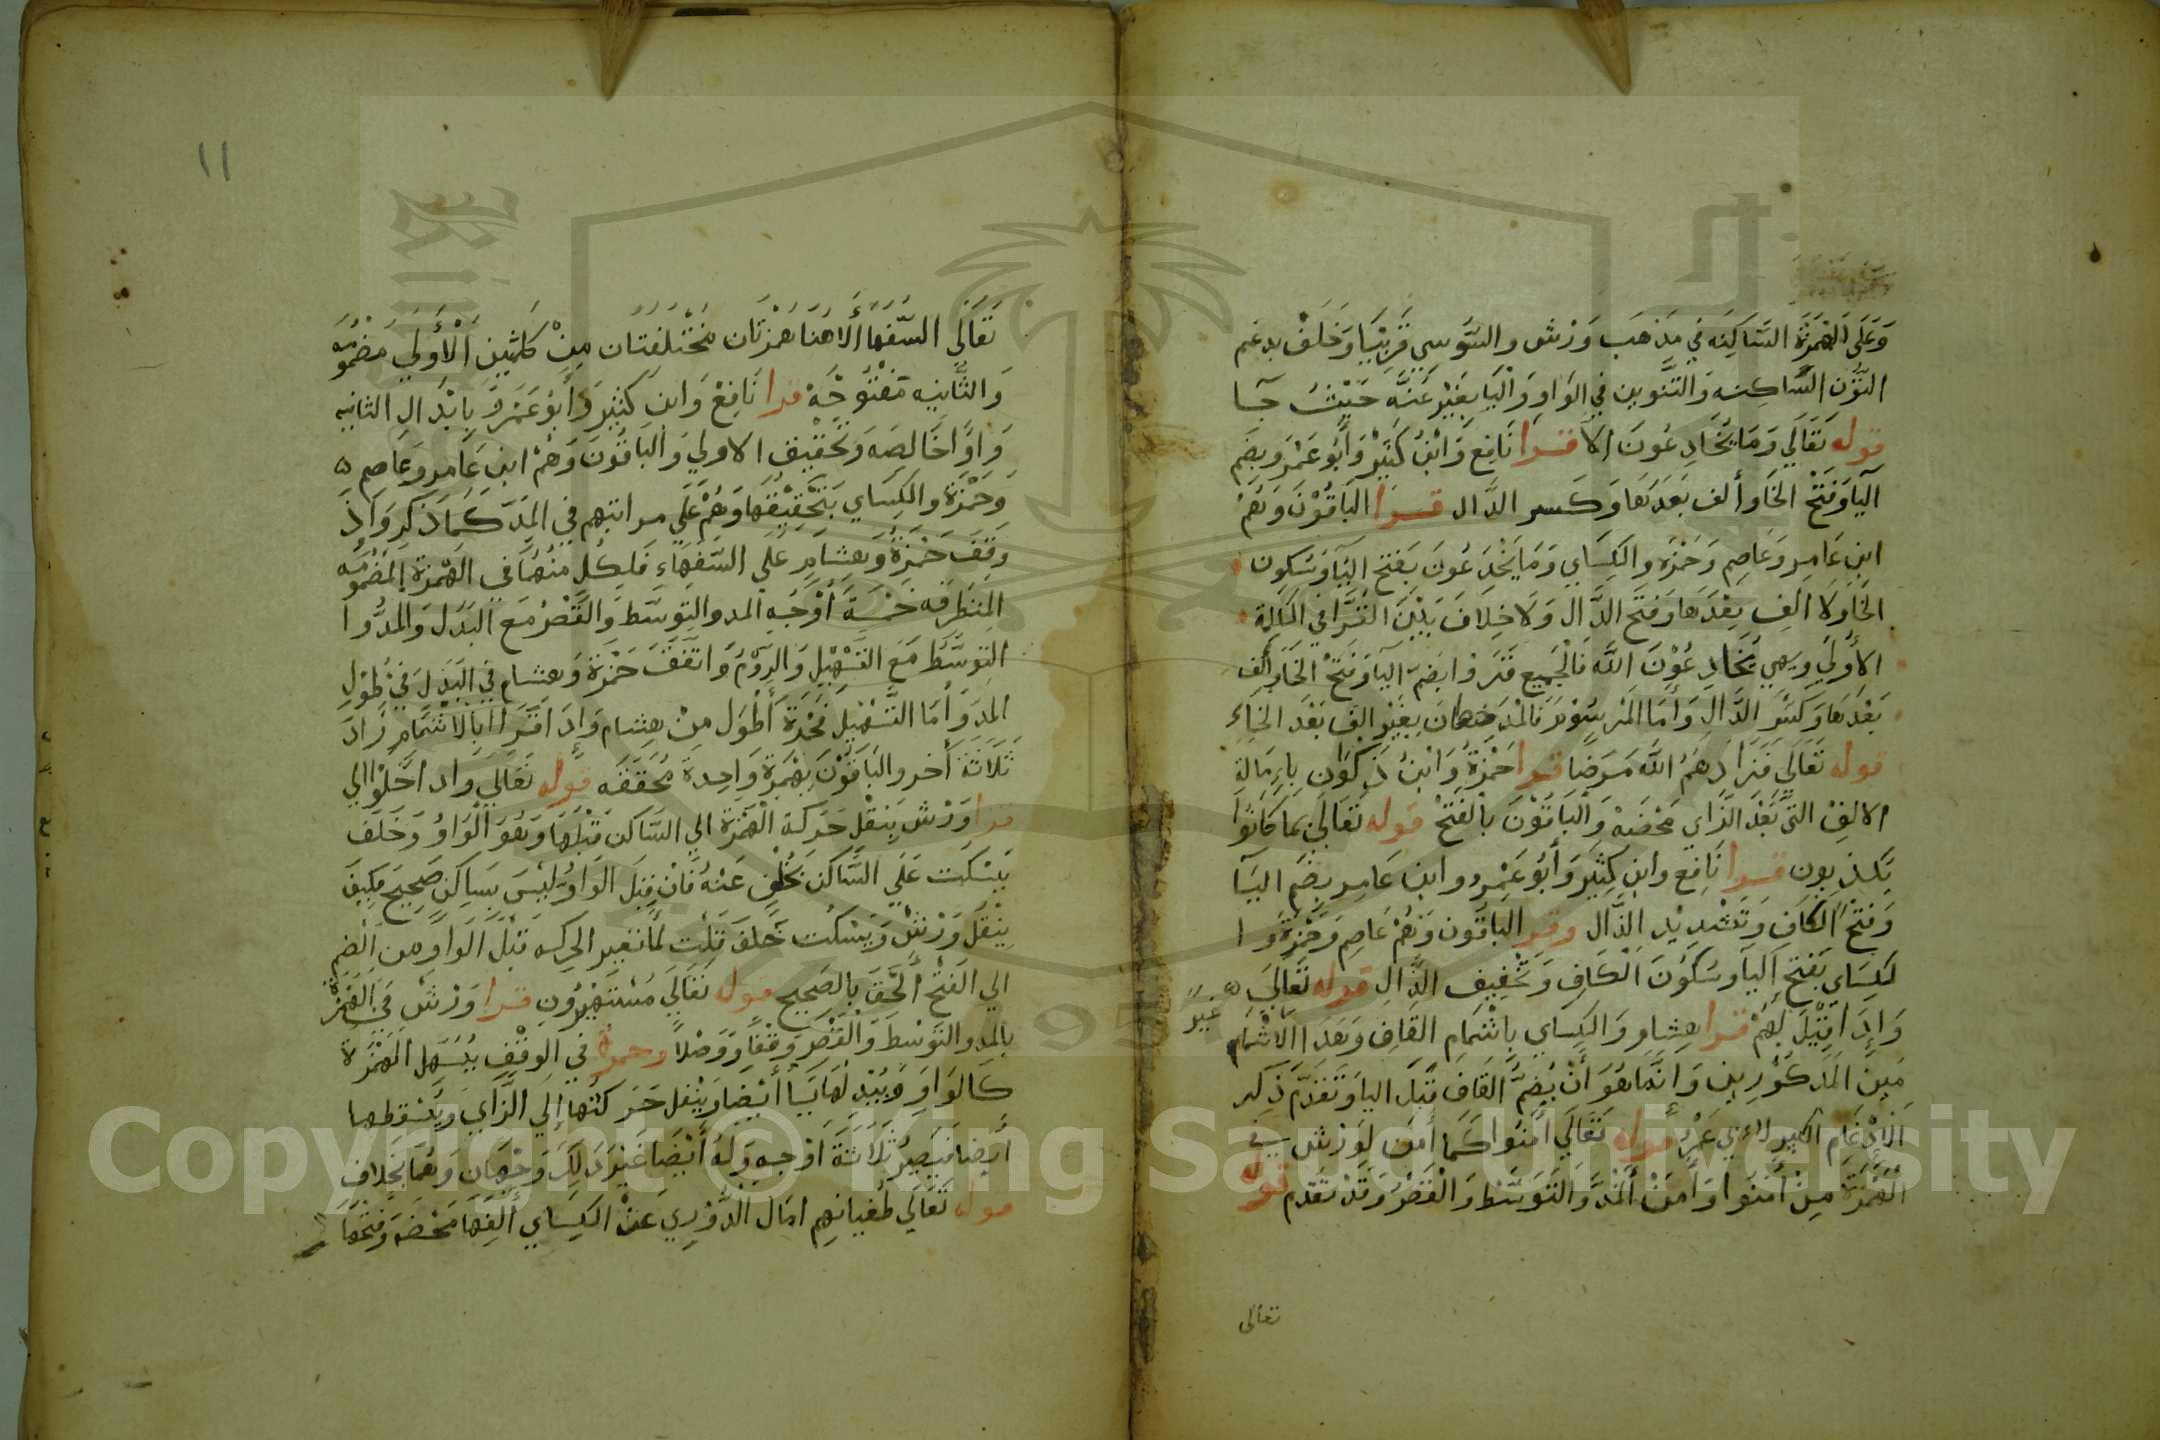 وَعَلَى الهَمْزَة السَّاكِنَه في مَذهَب وَرْش والسُّوسي قَرِيْبًا وَخَلَفْ يدغم
النّون السَّاكِنه وَالتَّنوين في الوَاو وَاليَا بغَيْر غنَّه حَيْثُ جا
قوله تَعَالَي وَمَا يُخَادِعُونَ الا قرا نَافع وَابْنُ كَثيْر وَأبُو عَمْرو بضَم
اليَا وَفَتْح الخَا وألف بَعدَهَا وَكَسر الدَّال قرا البَاقُوْنَ وَهُمْ
ابن عَامِر وَعَاصِم وَحَمْزَه والكِسَاي وَمَا يَخْدَعُونَ بفَتح اليَا وَسُكون
الخَا وَلَا الف بعْدَهَا وَفتَح الدَّال وَلَا خِلَافَ بَيْنَ القُرَّا في الكَلِمَة
الأُولَي وَهي يُخَادِعُوْنَ اللَّه فَالجَميع قَرَوْا بضَم اليَا وَفَتْح الخَا وَالف
بَعْدَهَا وَكَسْر الدَّال وَأمَا المَرسُوْم فَالمَوضعان بِغَيْر الِف بَعْد الخَاء
قوله تَعَالَي فَزَادَهمُ اللَّه مَرَضًا قرا حَمْزَة وَابْنُ ذَكْوَان بِإِمَالَة
الالفْ التي بَعْد الزَّاي مَحْضَه وَالبَاقُوْنَ بالفَتْح قوله تَعَالَى بمَا كَانُوا
يَكذبون قرا نَافع وابن كثِير وَأبُو عَمْرو وابن عَامِر بضَم اليَا
وَفَتْح الكَاف وَتَشْدِيد الذَّال وقرا البَاقُون وَهُمْ عَاصِم وَحَمْزَة وَا
لكِسَاي بفَتح اليَا وَسُكُونَ الكَاف وَتَخْفيف الذَّال قوله تَعَالَي
وَإِذَا قِيْلَ لَهمْ قرا هشام وَالكِسَاي بإشْمَام القَاف وَهَذَا الاشْمَام غير
مَبين المَذكُوْرين وَإنَّمَا هُوَ أنْ يُضَمَّ القَاف قَبَل اليا وَتَقَدَّم ذكر
الادْغَام الكبير لابي عَمْرو قوله تَعَالَي آمَنُوا كَمَا آمَن لوَرْش في
الهَمْزَة مِنْ آمَنُوا وَآمَنَ المَدَّ وَالتَوَسُّط وَالقَصْر وَقَدْ تقدم قوله
تعالى
١١
تَعَالَي السُّفَهَا ألَا هُنَا هَمْزتَان مخْتَلِفَتَان مِنْ كَلمتَيْن الأُولي مَضْمُومَه
وَالثَّانيه مَفْتُوحَة قرا نَافِع وَابن كَثِير وَأَبُو عَمْرو بِابْدَال الثانِيه
وَاوًا خَالصَه وَتَحْقيق الاولي وَالبَاقُونَ وَهُمْ ابن عَامر وَعَاصم
وَحَمْزَة والكِسَاي بتَحْقِيقهَا وَهُمْ عَلَي مراتبهم في المدّ كَمَا ذكر وَاذَا
وَقَفَ حَمْزَة وَهشَام عَلَي السُّفَهَاء فَلِكُل منهُمَا في الهَمْزة المَضْمُومَه
المتطرفه خَمْسَة أوْجُه المد والتوَسُّط وَالقَصْر مَع البَدَل وَالمَدّ وَا
التوَسُّط مَعَ التَسْهِيل وَالرّوْم وَاتفَقَ حَمْزَة وَهشام في البَدَل في طُول
المَدّ وَأمَا التَّسْهيل فَحَمْزَة أطْوَل مِنْ هِشام وَاذَا قَرَا بالاشْمَام زَادَ
ثَلَاثَة أخَر والبَاقُوْنَ بهَمْزَة وَاحِدة مُحَققَه قوله تَعَالَي وَاذا خَلَوْا الي
قرا وَرْش بنَقْل حَرَكة الهَمْزَة الي السَّاكن قَبْلَهَا وَهُوَ الوَاو وَخَلَف
يَسْكت عَلَي السَّاكن بخُلْف عَنه فَان قِيل الوَاو لَيْسَ بسَاكن صَحِيح فكيفَ
ينْقل وَرْش وَيَسْكُت خَلَف قلت لمَا تغير الحركه قبْل الوَاو من الضم
الي الفَتْح ألحق بالصَحِيح قوله تعَالَي مُسْتَهْزِؤن قرا وَرْش في الهَمْزَة
بالمد والتوسُّط وَالقَصْر وَقْفًا وَوَصْلًا وحمزة في الوقف يُسَهل الهَمْزَة
كَالوَاو وَيُبْدِلهَا يَا أيْضا وَيَنقل حَرَكتها إلي الزَّاي وَيُسْقطها
أيضا فَيَصيرُ ثَلَاثَة أوْجه وَلهُ أيْضًا غَيْر ذَلِكَ وَجْهَان وَهُمَا بخلاف
قوله تَعَالَي طُغْيانهم امَال الدُّوْري عَنْ الكسَاي ألفهَا مَحْضَه وَفتَحَهَا